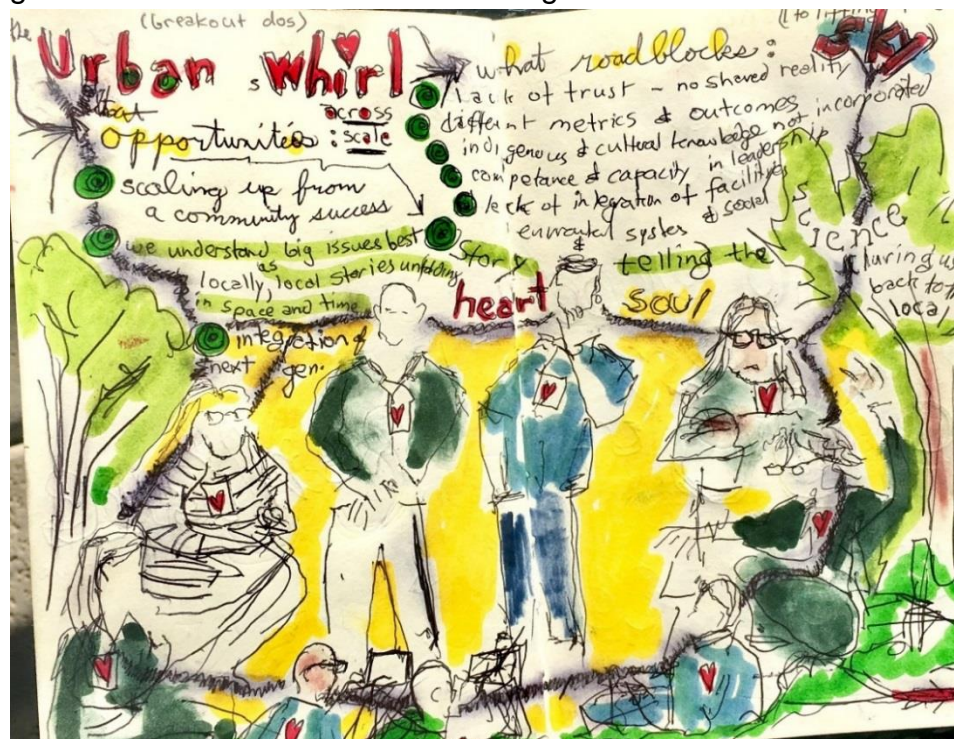 the
(breakout dos)
Urban s whirl
that
opportunities : across scale
scaling up from
a community success
we understand big issues best
as
locally, local stories unfolding
in space and time
integration &
next gen.
what roadblocks :
lack of trust - no shared reality
different metrics & outcomes
indigenous & cultural knowledge not incorporated
competance & capacity in leadership
lack of integration of facilities
& social
system
&
story telling the
heart soul
sky
science
back to
local